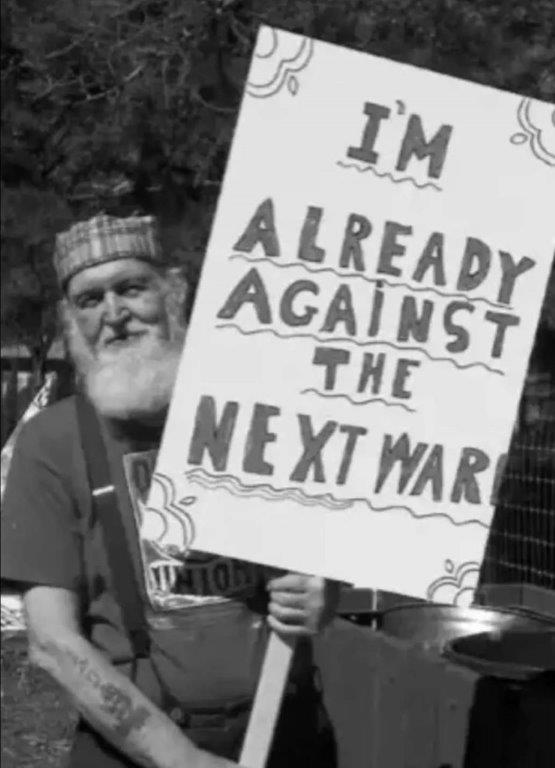 I'M
ALREADY
AGAINST
THE
NEXT WAR